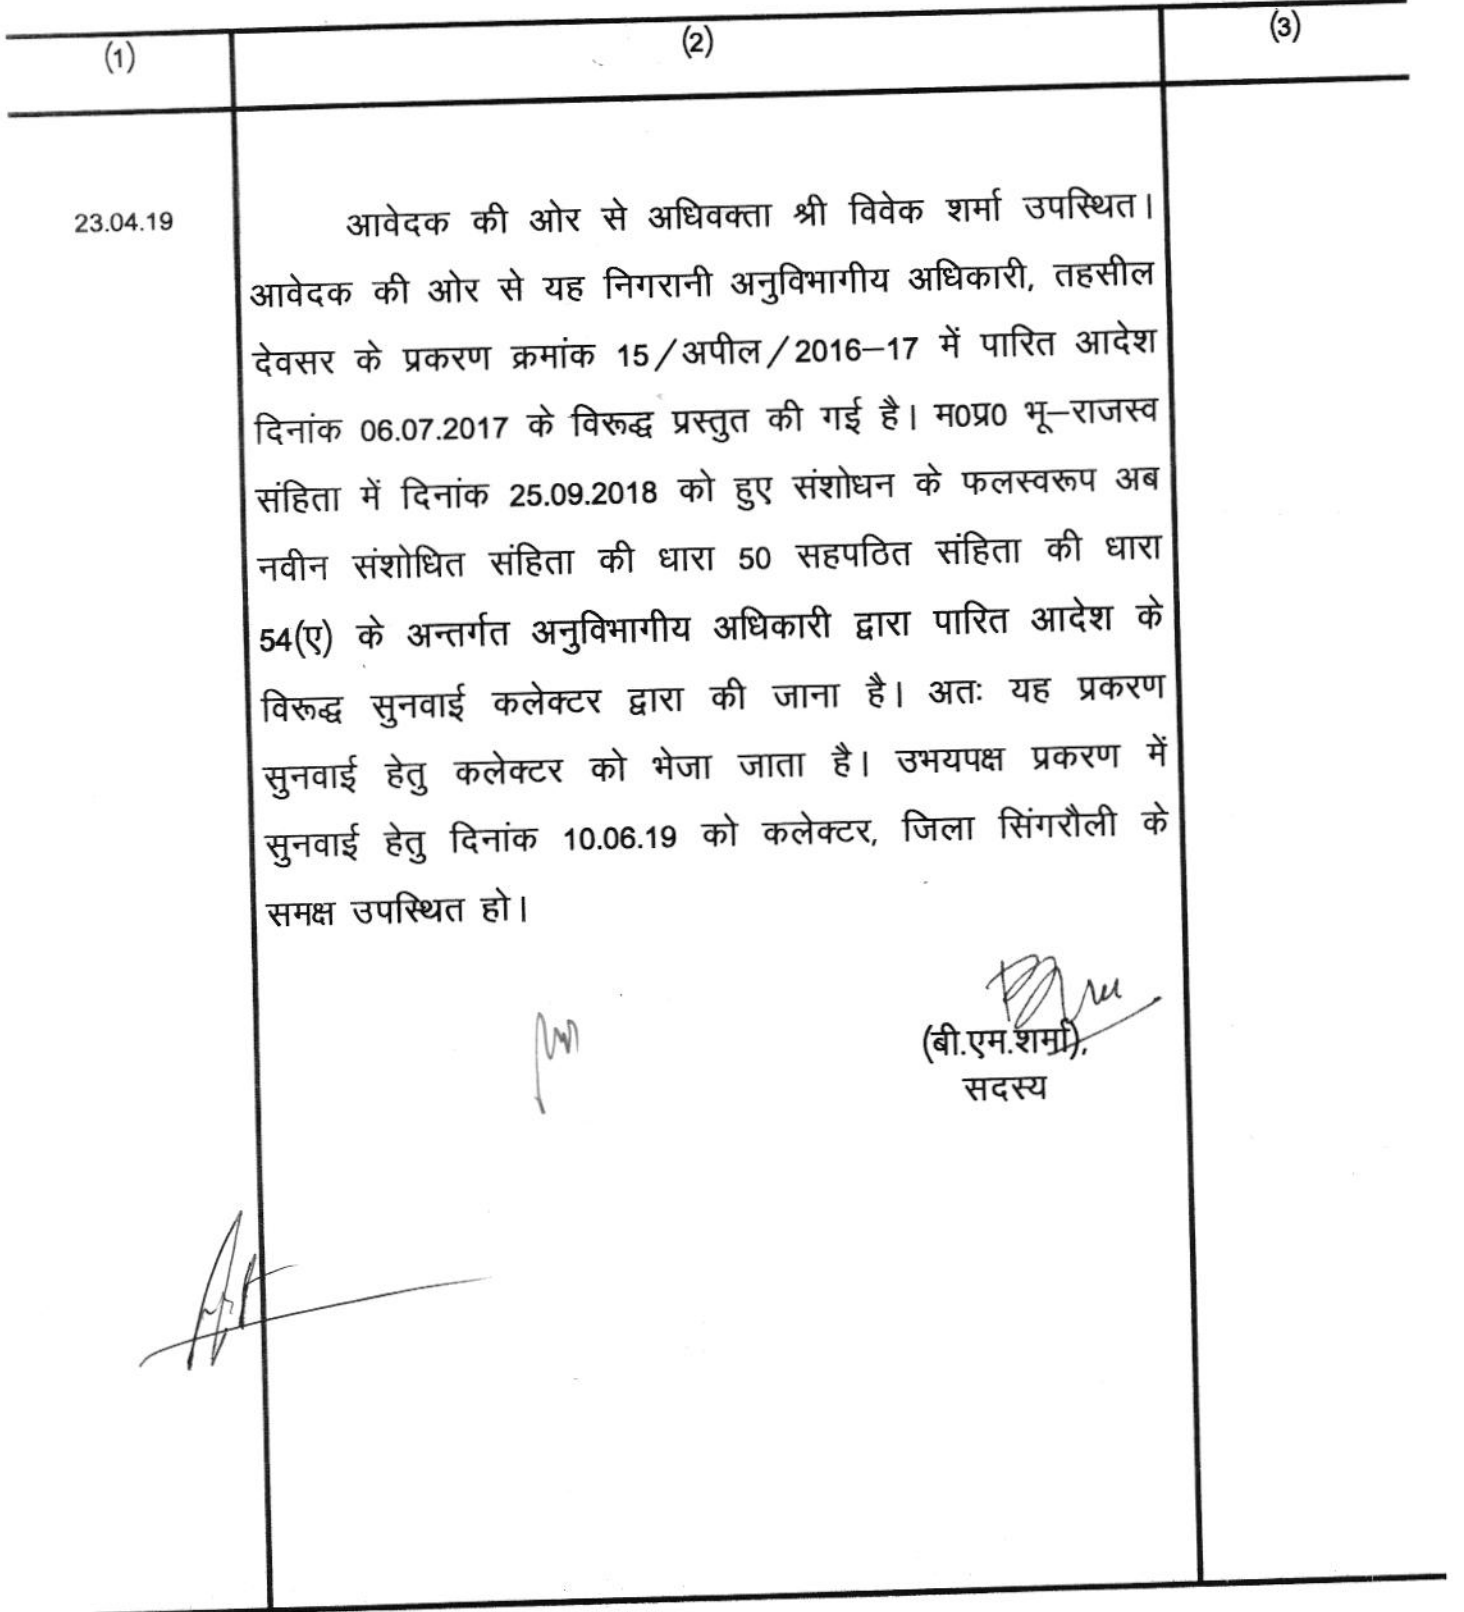 (1) (2) (3)
23.04.19 आवेदक की ओर से अधिवक्ता श्री विवेक शर्मा उपस्थित।
आवेदक की ओर से यह निगरानी अनुविभागीय अधिकारी, तहसील
देवसर के प्रकरण क्रमांक 15/अपील/2016–17 में पारित आदेश
दिनांक 06.07.2017 के विरूद्ध प्रस्तुत की गई है। म0प्र0 भू–राजस्व
संहिता में दिनांक 25.09.2018 को हुए संशोधन के फलस्वरूप अब
नवीन संशोधित संहिता की धारा 50 सहपठित संहिता की धारा
54(ए) के अन्तर्गत अनुविभागीय अधिकारी द्वारा पारित आदेश के
विरूद्ध सुनवाई कलेक्टर द्वारा की जाना है। अतः यह प्रकरण
सुनवाई हेतु कलेक्टर को भेजा जाता है। उभयपक्ष प्रकरण में
सुनवाई हेतु दिनांक 10.06.19 को कलेक्टर, जिला सिंगरौली के
समक्ष उपस्थित हो।
(बी.एम.शर्मा),
सदस्य